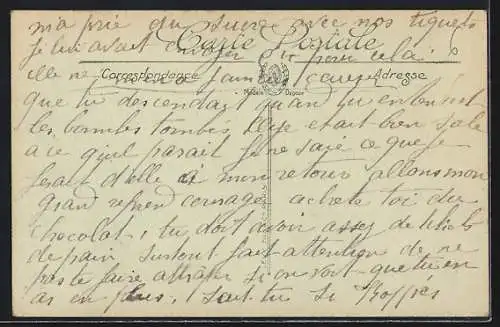 ma prié du sucre avec nos tiquets
si lui avait envoyer pour cela
Carte Postale
elle ne jamais
Correspondance Adresse
que tu descendait quand tu entennet
les bombes tombés Elyse etait bien sale
a ce qu'il parait je ne sais ce que je
ferait d'elle a mon retour allons mon
grand reprend courage achete toi du
chocolat, tu doit avoir assez de tikets
de pain surtout fait attention de ne
pas te faire attraper si on voit que tu en
as en plus, sait tu si